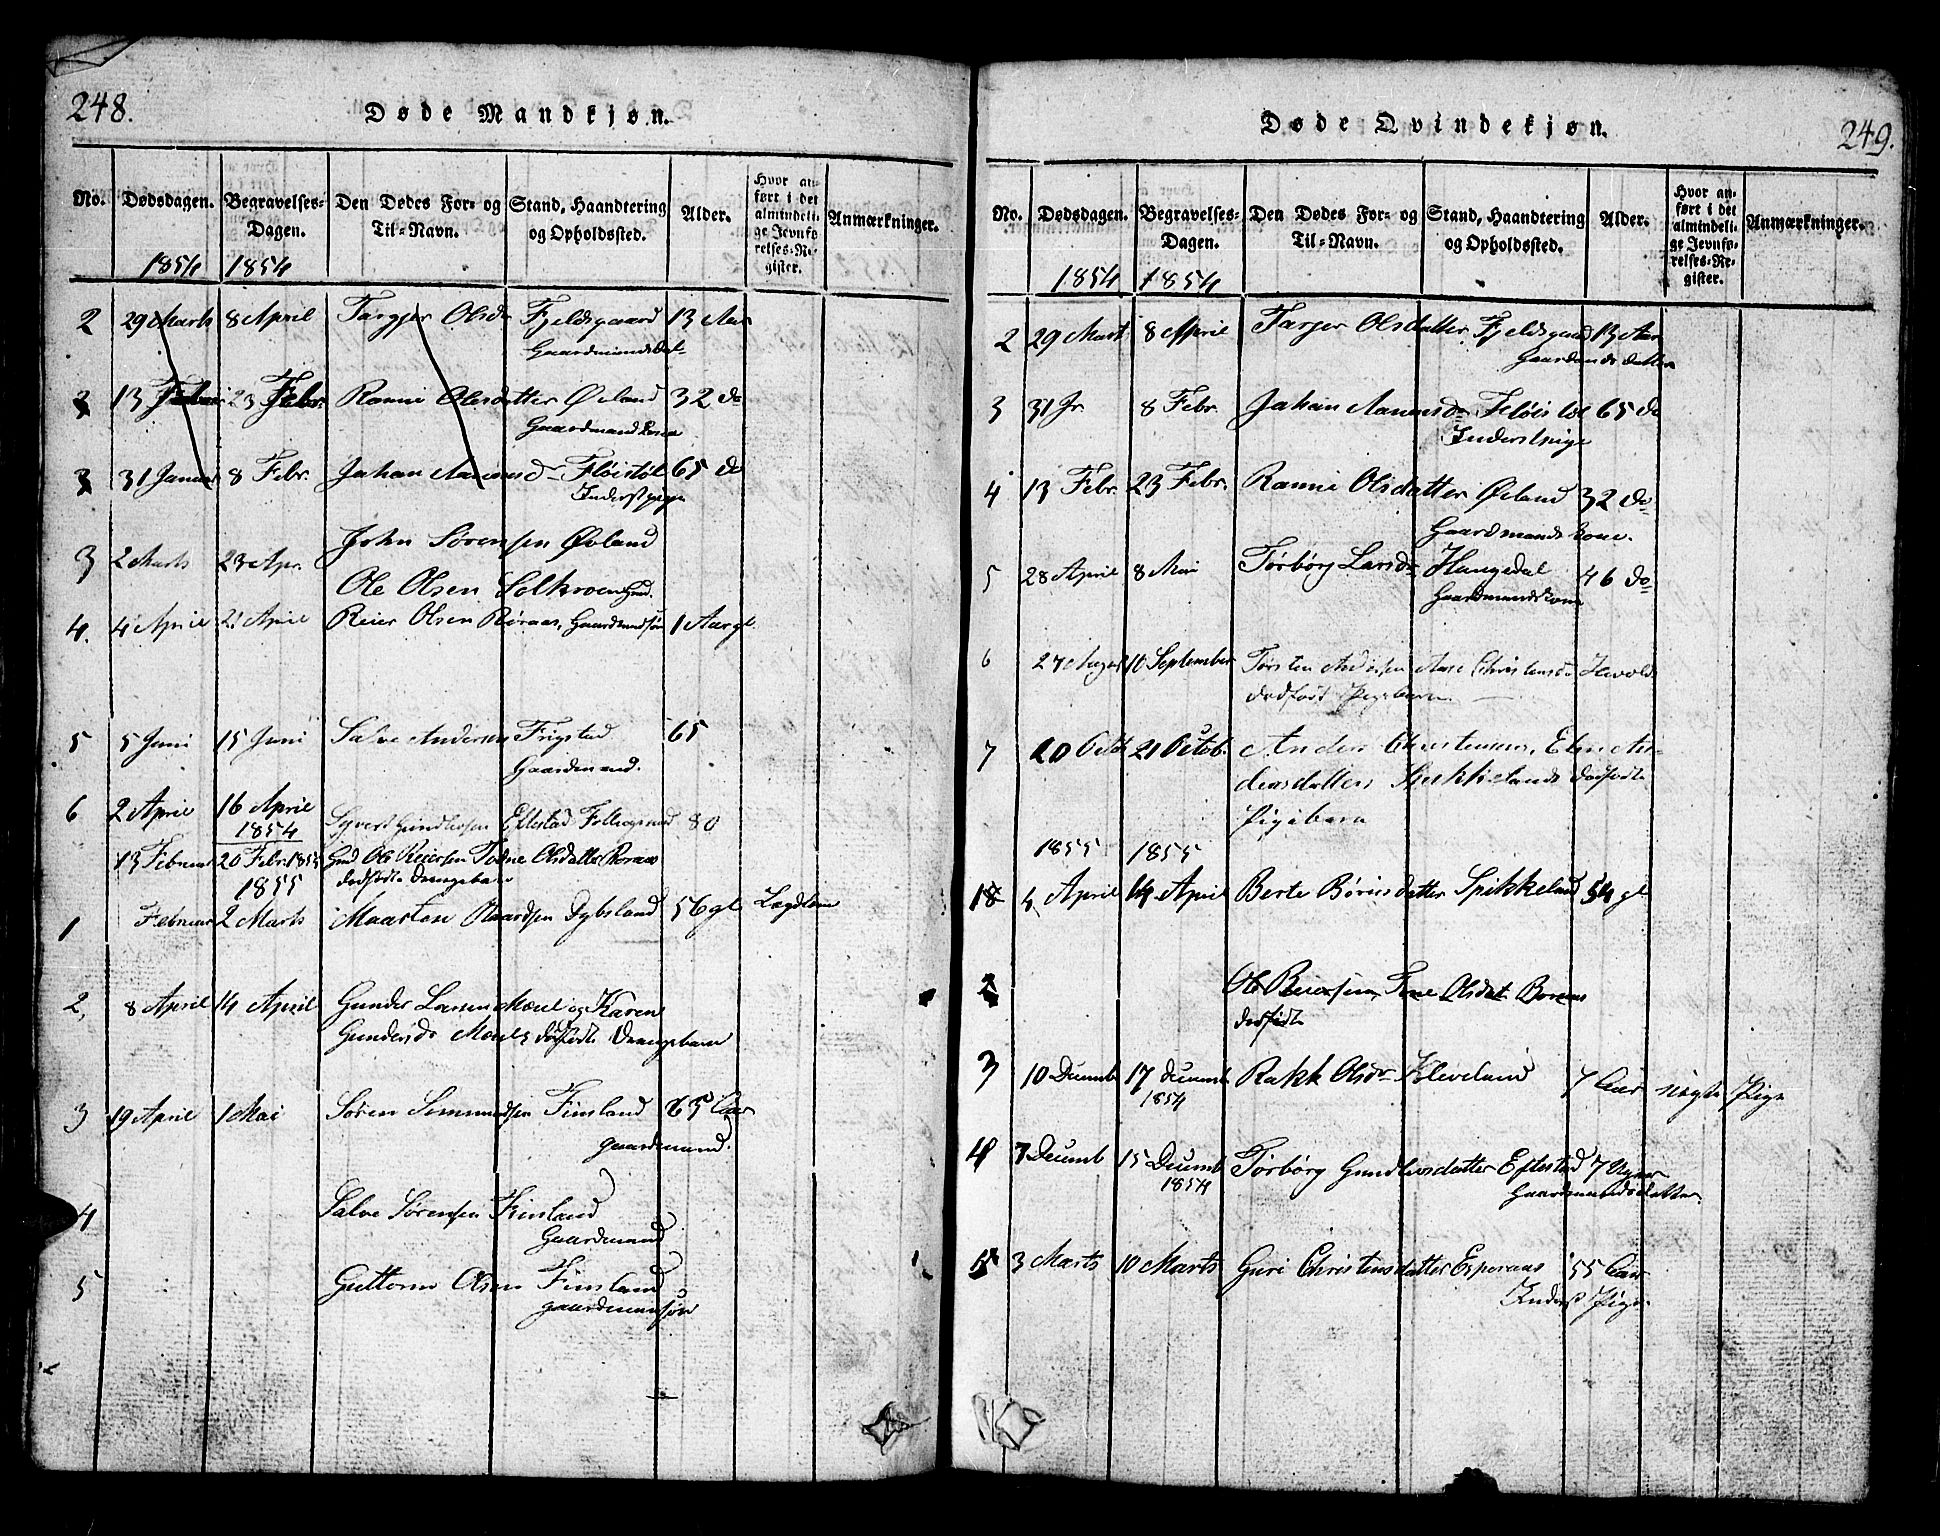 248.
Døde Mandkjøn.
No. Dødsdagen. Begravelses-Dagen. Den Dødes For- og Til-Navn. Stand, Haandtering og Opholdssted. Alder. Hvor anført i det almindelige Jevnførelses-Register. Anmærkninger.
1854 1854
2 29 Marts 8 April Targjer Olsdr Fjeldsgaard 13 Aar
Gaardmandsdat-
3 13 Februar 23 Febr. Ranni Olesdatter Øvland 32 do
Gaardmandkone
3 31 Januar 8 Febr. Johan Aanensd Fløistøl 65 do
Inderstpige
John Sørensen Øvland
3 2 Marts 23 Apr.
Ole Olsen Solkroen Gmd.
4. 4 April 21 April Reier Olsen Røraas, Gaardmandsøn 1 Aar gl.
5 5 Juni 15 Juni Salve Andersen Frigstad 65
Gaardmand.
6 2 April 16 April Syvert Gundersen Eftestad 80
1854
13 Februar 20 Febr. 1855 Gmd Ole Reiersen Tone Olsdatter Roraas
1855 dødfødte Drengebarn
1 Februar 2 Marts Maarten Dybsland 56 gl Lægdlem
2, 8 April 14 April Gunder Larsen Moeul og Karen
Gundersdr Moeuls dødfødte Drengebarn
3 19 April 1 Mai Søren Simmundsen Finsland 65 Aar
gaardmand.
4 Salve Sørensen Finland
Gaardmand
5 Guttorm Olsen Finsland
gaardmandsøn
249.
Døde Qvindekjøn.
No. Dødsdagen. Begravelses-Dagen. Den Dødes For- og Til-Navn. Stand, Haandtering og Opholdssted. Alder. Hvor anført i det almindelige Jevnførelses-Register. Anmærkninger.
1854 1854
2 29 Mart 8 April Targer Olsdatter Fjeldsgaard 13 Aar
Gaardmands datter
3 31 Jr. 8 Febr. Johan Aanensdr Fløistøl 65 do
Inderstpige
4 13 Febr. 23 Febr. Ranni Olsdatter Øvland 32 do
Gaardmands kone.
5 28 April 8 Mai Torbørg Larsdr Haugedal 46 do
Gaardmandskone
6 27 August 10 September Torsten Andersen Aase Christensdr
dødfødt Pigebarn
7 20 Octb 21 Octob. Anders Christensens, Elen An-
dersdatters Spikkelands dødfødte
Pigebarn
1855 1855
1 4 April 14 April Berte Børresdatter Spikkeland 54 gl
2 Ole Reiersen, Tone Olsdat Roraas
dødfødte
3 10 Decemb 17 decemb. Rakk Olsdr Kleveland 7 Aar nøgte Pige
1854
4 7 Decemb 15 Decemb Torbørg Gundersdatter Eftestad 7 Uger
1854 Gaardmandsdatter
5 3 Marts 10 Marts Guri Christensdatter Esperaas 55 Aar
Inderst Pige